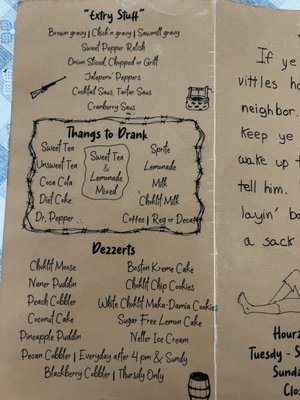 "Extry Stuff"
Brown gravy | Chick'n gravy | Sawmill gravy
Sweet Pepper Relish
Onion Sliced, Chopped or Grill
Jalepeno Peppers
Cocktail Saus, Tartar Saus
Cranberry Saus
Thangs to Drank
Sweet Tea
Unsweet Tea
Coca Cola
Diet Coke
Dr. Pepper
Sweet Tea
&
Lemonade
Mixed
Sprite
Lemonade
Milk
Choklit Milk
Coffee | Reg or Decaff
Dezzerts
Choklit Moose
Naner Puddin
Peach Cobbler
Coconut Cake
Pineapple Puddin
Boston Kreme Cake
Choklit Chip Cookies
White Choklit Maka-Damia Cookies
Sugar Free Lemon Cake
Neller Ice Cream
Pecan Cobbler | Everyday after 4 pm & Sundy
Blackberry Cobbler | Thursdy Only
If ye
vittles ha
neighbor.
keep ye
wake up t
tell him.
layin' ba
a sack
Hourz
Tuesdy - S
Sunda
Clo